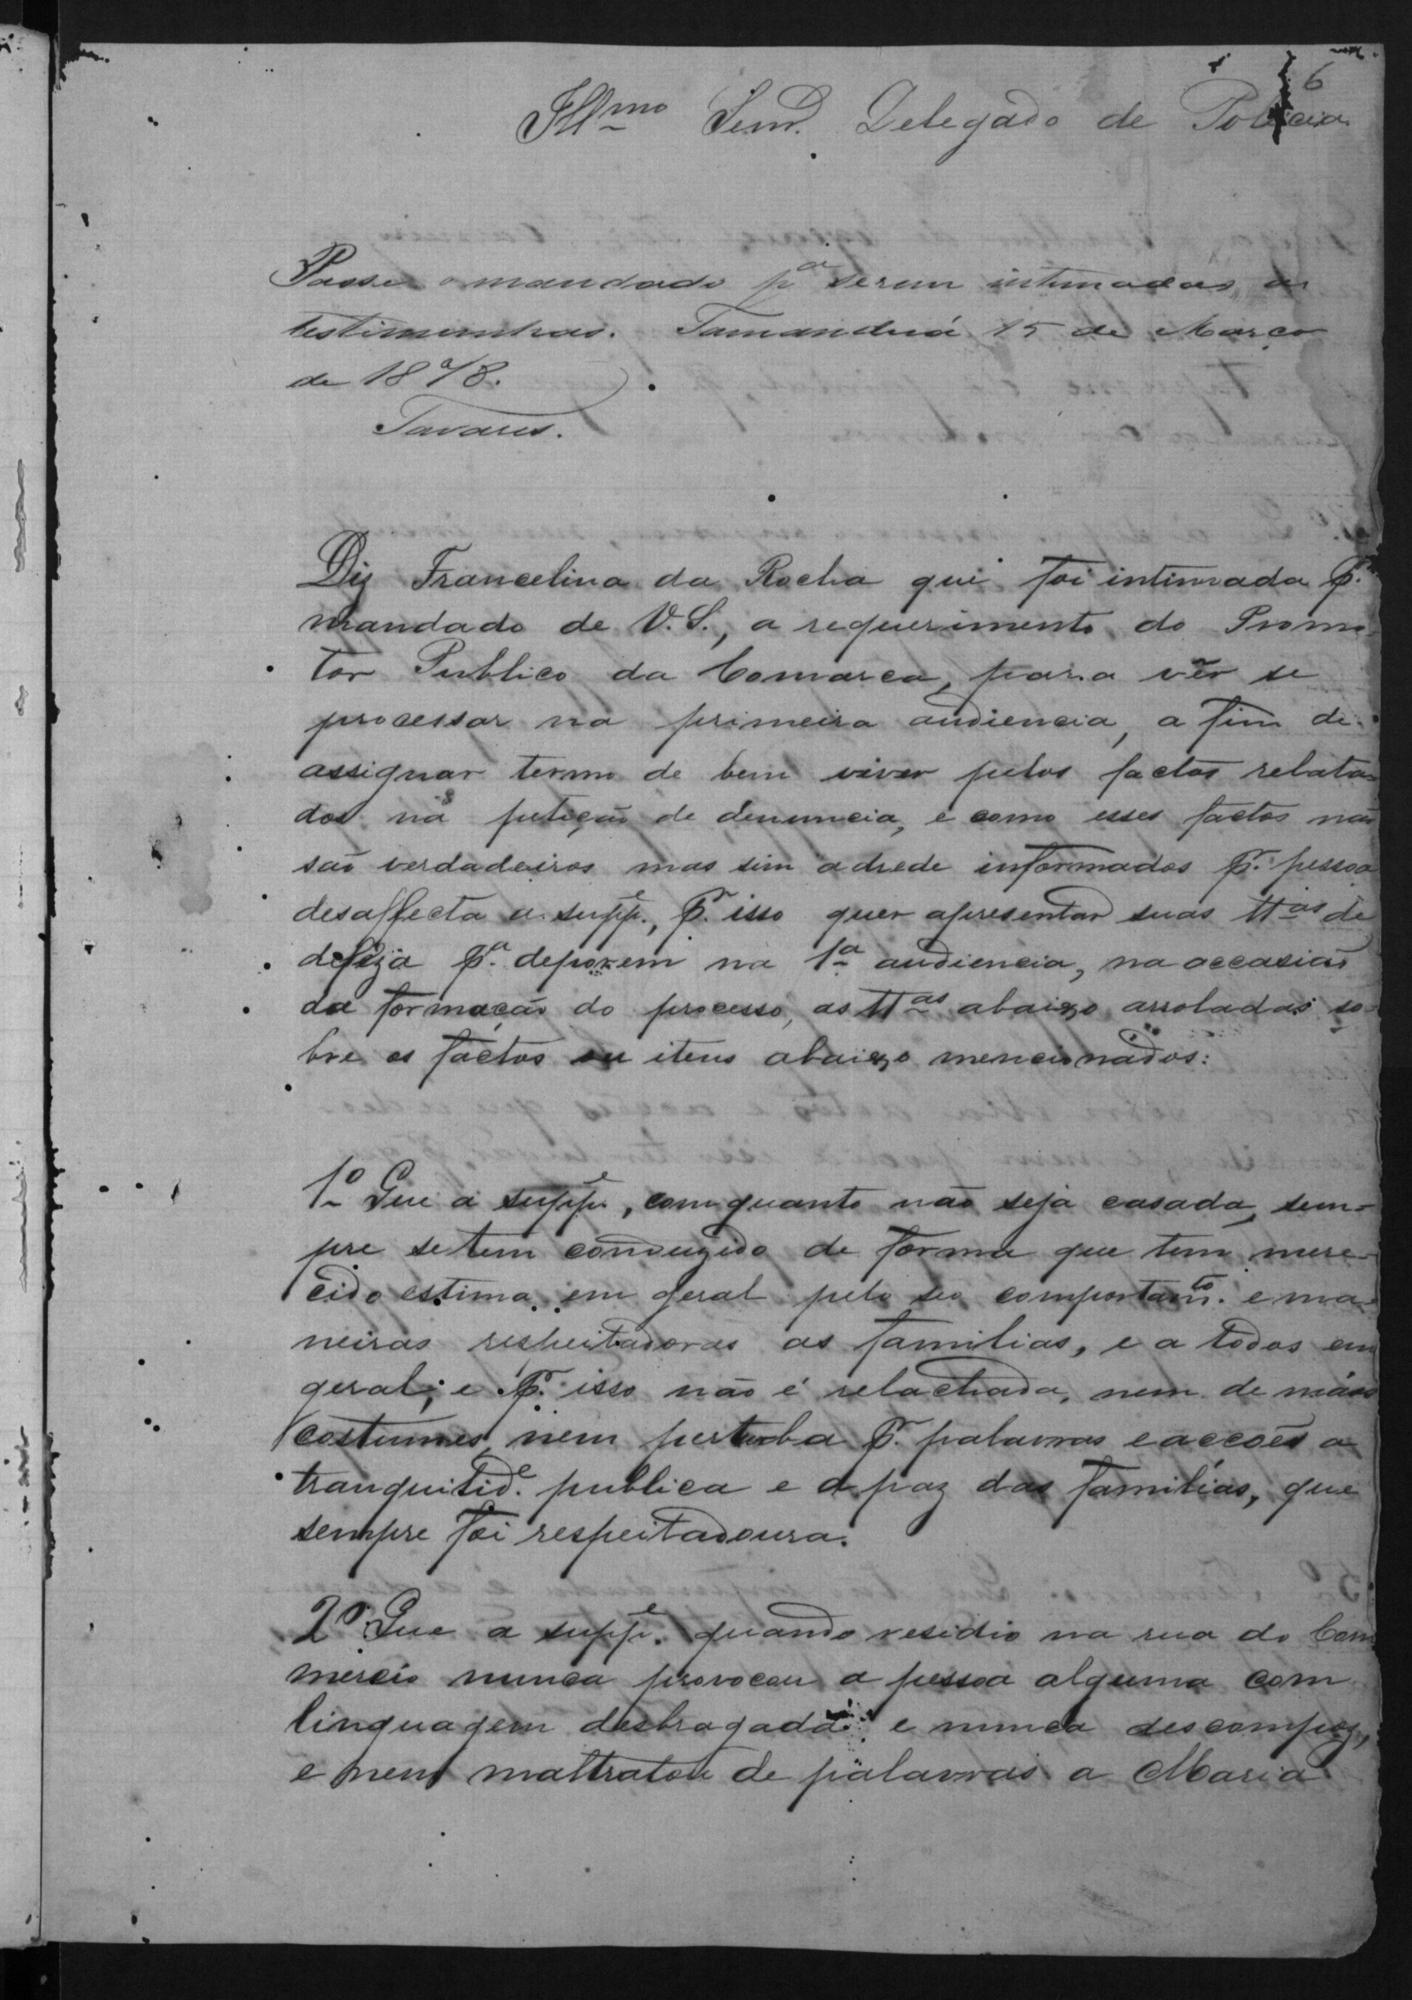 6
Illmo Senr. Delegado de Policia
Passe o mandado pa serem intimadas as
testimunhas. Tamanduá 15 de Março
de 1878.
Tavares.
Diz Francelina da Rocha que foi intimada pr.
mandado de V.S., a requerimento do Promo-
tor Publico da Comarca, para vêr se
processar na primeira audiencia, a fim de
assignar termo de bem viver pelos factos relata-
dos na petição de denuncia, e como esses factos não
são verdadeiros mas sim adrede informados pr. pessoa
desaffecta a suppe., pr. isso quer apresentar suas ttas de
defeza pa. deporem na 1a audiencia, na occasião
da formação do processo, as ttas abaixo arroladas so-
bre os factos ou itens abaixo mencionados:
1o Que a suppe, comquanto não seja casada, sem-
pre se tem conduzido de forma que tem mere-
cido estima em geral pelo seo comportamto. e ma-
neiras respeitadoras as familias, e a todos em
geral; e pr. isso não é relachada, nem de máos
costumes, nem perturba pr. palavras e accões a
tranquilide. publica e a paz das familias, que
sempre foi respeitadoura.
2o Que a suppe. quando residio na rua do Com
mercio nunca provocou a pessoa alguma com
linguagem desbragada e nunca descompoz,
e nem maltratou de palavras a Maria